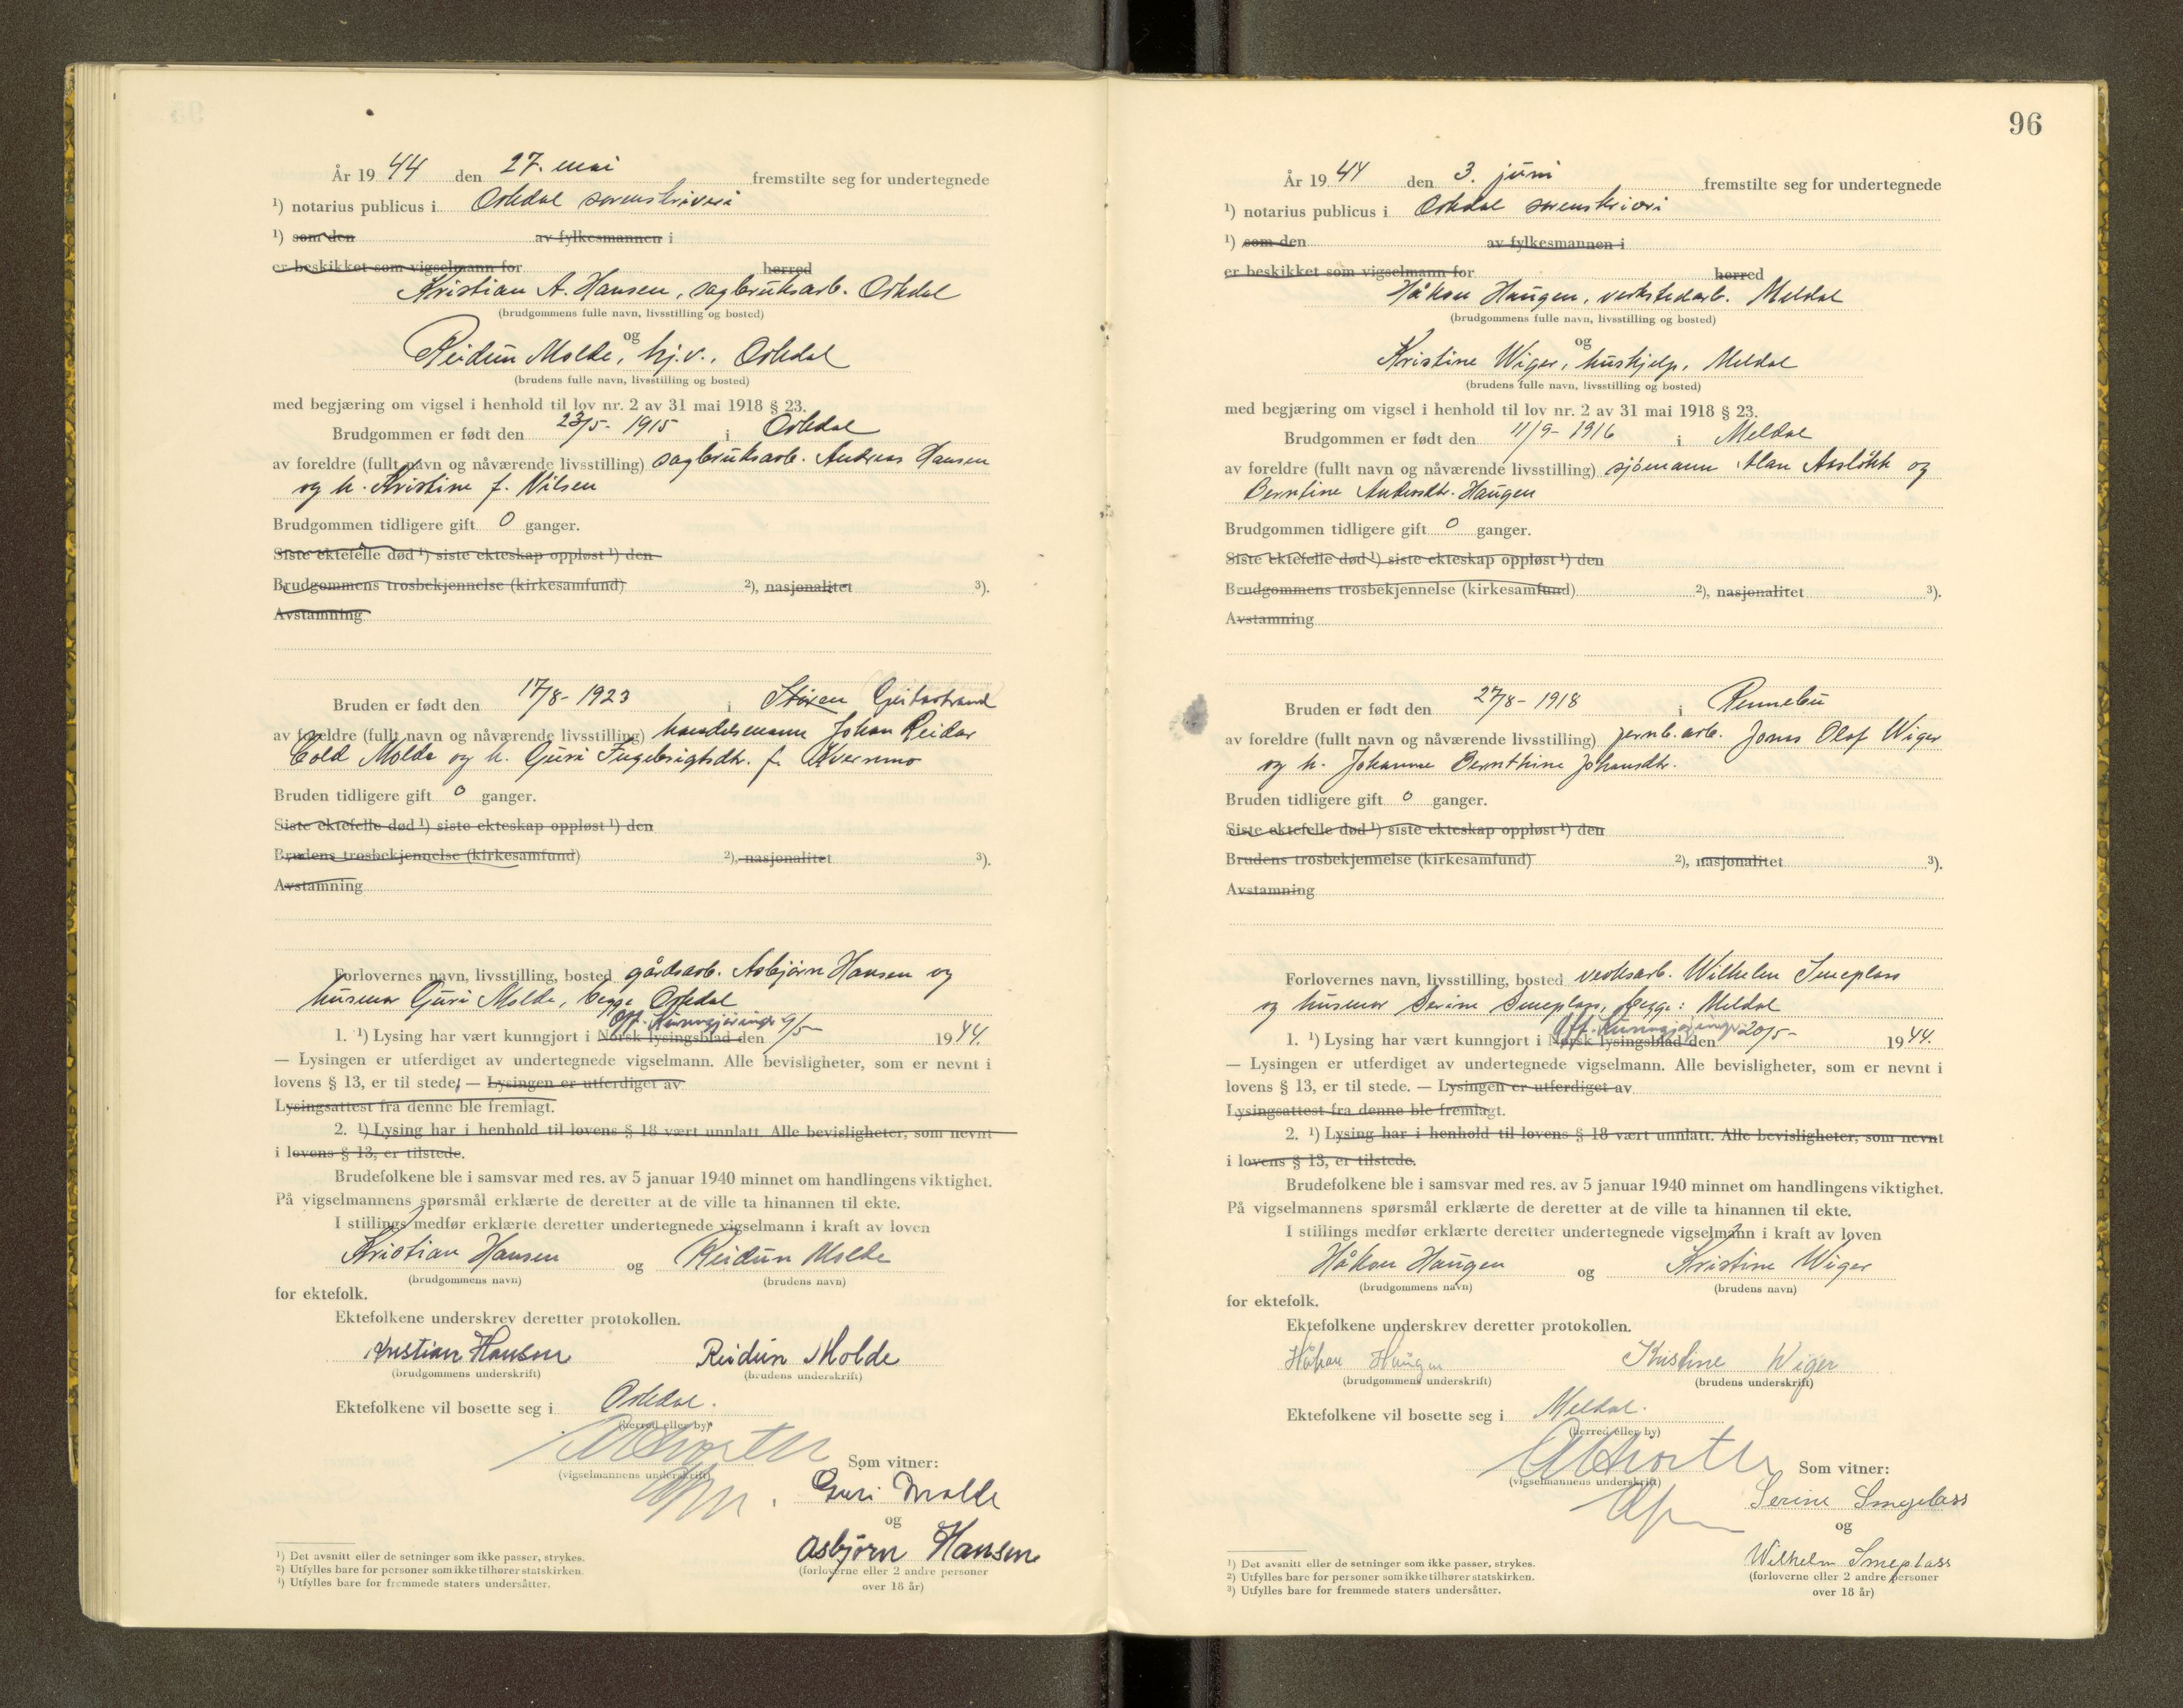 År 1944 den 27. mai fremstilte seg for undertegnede
¹) notarius publicus i Orkdal sorenskriveri
¹) som den av fylkesmannen i
er beskikket som vigselmann for herred
Kristian A. Hansen, sagbruksarb. Orkdal
(brudgommens fulle navn, livsstilling og bosted)
og
Reidun Molde, hj.v., Orkdal
(brudens fulle navn, livsstilling og bosted)
med begjæring om vigsel i henhold til lov nr. 2 av 31 mai 1918 § 23.
Brudgommen er født den 23/5- 1915 i Orkdal
av foreldre (fullt navn og nåværende livsstilling) sagbruksarb. Andreas Hansen
og h. Kristine f. Nilsen
Brudgommen tidligere gift 0 ganger.
Siste ektefelle død ¹) siste ekteskap oppløst ¹) den
Brudgommens trosbekjennelse (kirkesamfund) ²), nasjonalitet ³).
Avstamning
Bruden er født den 17/8- 1923 i Støren Geitastrand
av foreldre (fullt navn og nåværende livsstilling) handelsmann Johan Reidar
Cold Molde og h. Guri Ingebrigtsdtr. f. Kvernmo
Bruden tidligere gift 0 ganger.
Siste ektefelle død ¹) siste ekteskap oppløst ¹) den
Brudens trosbekjennelse (kirkesamfund) ²), nasjonalitet ³).
Avstamning
Forlovernes navn, livsstilling, bosted gårdsarb. Asbjørn Hansen og
husmor Guri Molde, begge Orkdal
Off. Kunngjøringer 9/5-
1. ¹) Lysing har vært kunngjort i Norsk lysingsblad den 1944.
— Lysingen er utferdiget av undertegnede vigselmann. Alle bevisligheter, som er nevnt i
lovens § 13, er til stede, — Lysingen er utferdiget av
Lysingsattest fra denne ble fremlagt.
2. ¹) Lysing har i henhold til lovens § 18 vært unnlatt. Alle bevisligheter, som nevnt
i lovens § 13, er tilstede.
Brudefolkene ble i samsvar med res. av 5 januar 1940 minnet om handlingens viktighet.
På vigselmannens spørsmål erklærte de deretter at de ville ta hinannen til ekte.
I stillings medfør erklærte deretter undertegnede vigselmann i kraft av loven
Kristian Hansen og Reidun Molde
(brudgommens navn) (brudens navn)
for ektefolk.
Ektefolkene underskrev deretter protokollen.
Kristian Hansen Reidun Molde
(brudgommens underskrift) (brudens underskrift)
Ektefolkene vil bosette seg i Orkdal.
(herred eller by)
(vigselmannens underskrift) Som vitner:
Guri Molde
og
Asbjørn Hansen
(forloverne eller 2 andre personer
over 18 år)
¹) Det avsnitt eller de setninger som ikke passer, strykes.
²) Utfylles bare for personer som ikke tilhører statskirken.
³) Utfylles bare for fremmede staters undersåtter.
96
År 1944 den 3. juni fremstilte seg for undertegnede
¹) notarius publicus i Orkdal sorenskriveri
¹) som den av fylkesmannen i
er beskikket som vigselmann for herred
Håkon Haugen, verkstedarb. Meldal
(brudgommens fulle navn, livsstilling og bosted)
og
Kristine Wiger, hushjelp, Meldal
(brudens fulle navn, livsstilling og bosted)
med begjæring om vigsel i henhold til lov nr. 2 av 31 mai 1918 § 23.
Brudgommen er født den 11/9- 1916 i Meldal
av foreldre (fullt navn og nåværende livsstilling) sjømann Alan Aasløkk og
Berntine Andersdtr. Haugen
Brudgommen tidligere gift 0 ganger.
Siste ektefelle død ¹) siste ekteskap oppløst ¹) den
Brudgommens trosbekjennelse (kirkesamfund) ²), nasjonalitet ³).
Avstamning
Bruden er født den 27/8- 1918 i Rennebu
av foreldre (fullt navn og nåværende livsstilling) jernb.arb. Jonas Olaf Wiger
og h. Johanne Bernthine Johansdtr.
Bruden tidligere gift 0 ganger.
Siste ektefelle død ¹) siste ekteskap oppløst ¹) den
Brudens trosbekjennelse (kirkesamfund) ²), nasjonalitet ³).
Avstamning
Forlovernes navn, livsstilling, bosted verksarb. Wilhelm Smeplass
og husmor Serine Smeplass, begge: Meldal
Off. Kunngjøringer 20/5-
1. ¹) Lysing har vært kunngjort i Norsk lysingsblad den 1944.
— Lysingen er utferdiget av undertegnede vigselmann. Alle bevisligheter, som er nevnt i
lovens § 13, er til stede. — Lysingen er utferdiget av
Lysingsattest fra denne ble fremlagt.
2. ¹) Lysing har i henhold til lovens § 18 vært unnlatt. Alle bevisligheter, som nevnt
i lovens § 13, er tilstede.
Brudefolkene ble i samsvar med res. av 5 januar 1940 minnet om handlingens viktighet.
På vigselmannens spørsmål erklærte de deretter at de ville ta hinannen til ekte.
I stillings medfør erklærte deretter undertegnede vigselmann i kraft av loven
Håkon Haugen og Kristine Wiger
(brudgommens navn) (brudens navn)
for ektefolk.
Ektefolkene underskrev deretter protokollen.
Håkon Haugen Kristine Wiger
(brudgommens underskrift) (brudens underskrift)
Ektefolkene vil bosette seg i Meldal.
(herred eller by)
(vigselmannens underskrift) Som vitner:
Serine Smeplass
og
Wilhelm Smeplass
(forloverne eller 2 andre personer
over 18 år)
¹) Det avsnitt eller de setninger som ikke passer, strykes.
²) Utfylles bare for personer som ikke tilhører statskirken.
³) Utfylles bare for fremmede staters undersåtter.